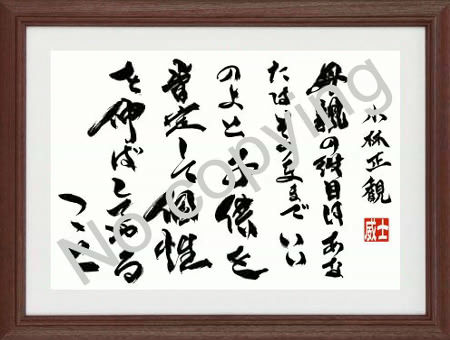 小林正観
母親の役目はあな
たはそのままでいい
のよと子供を
肯定して個性
を伸ばしてあげる
こと
威士
No copying